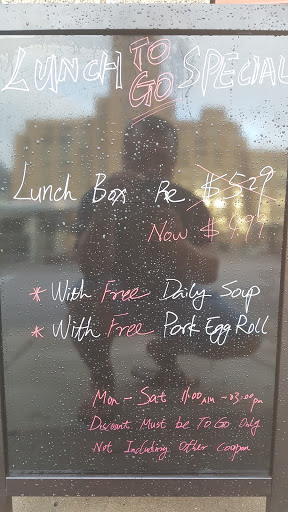 LUNCH TO GO SPECIAL
Lunch Box Re. $5.29
Now $4.99
* With Free Daily Soup
* With Free Pork Egg Roll
Mon - Sat 11:00 AM ~ 03:00 pm
Discount Must be To Go Only
Not Including Other Coupon